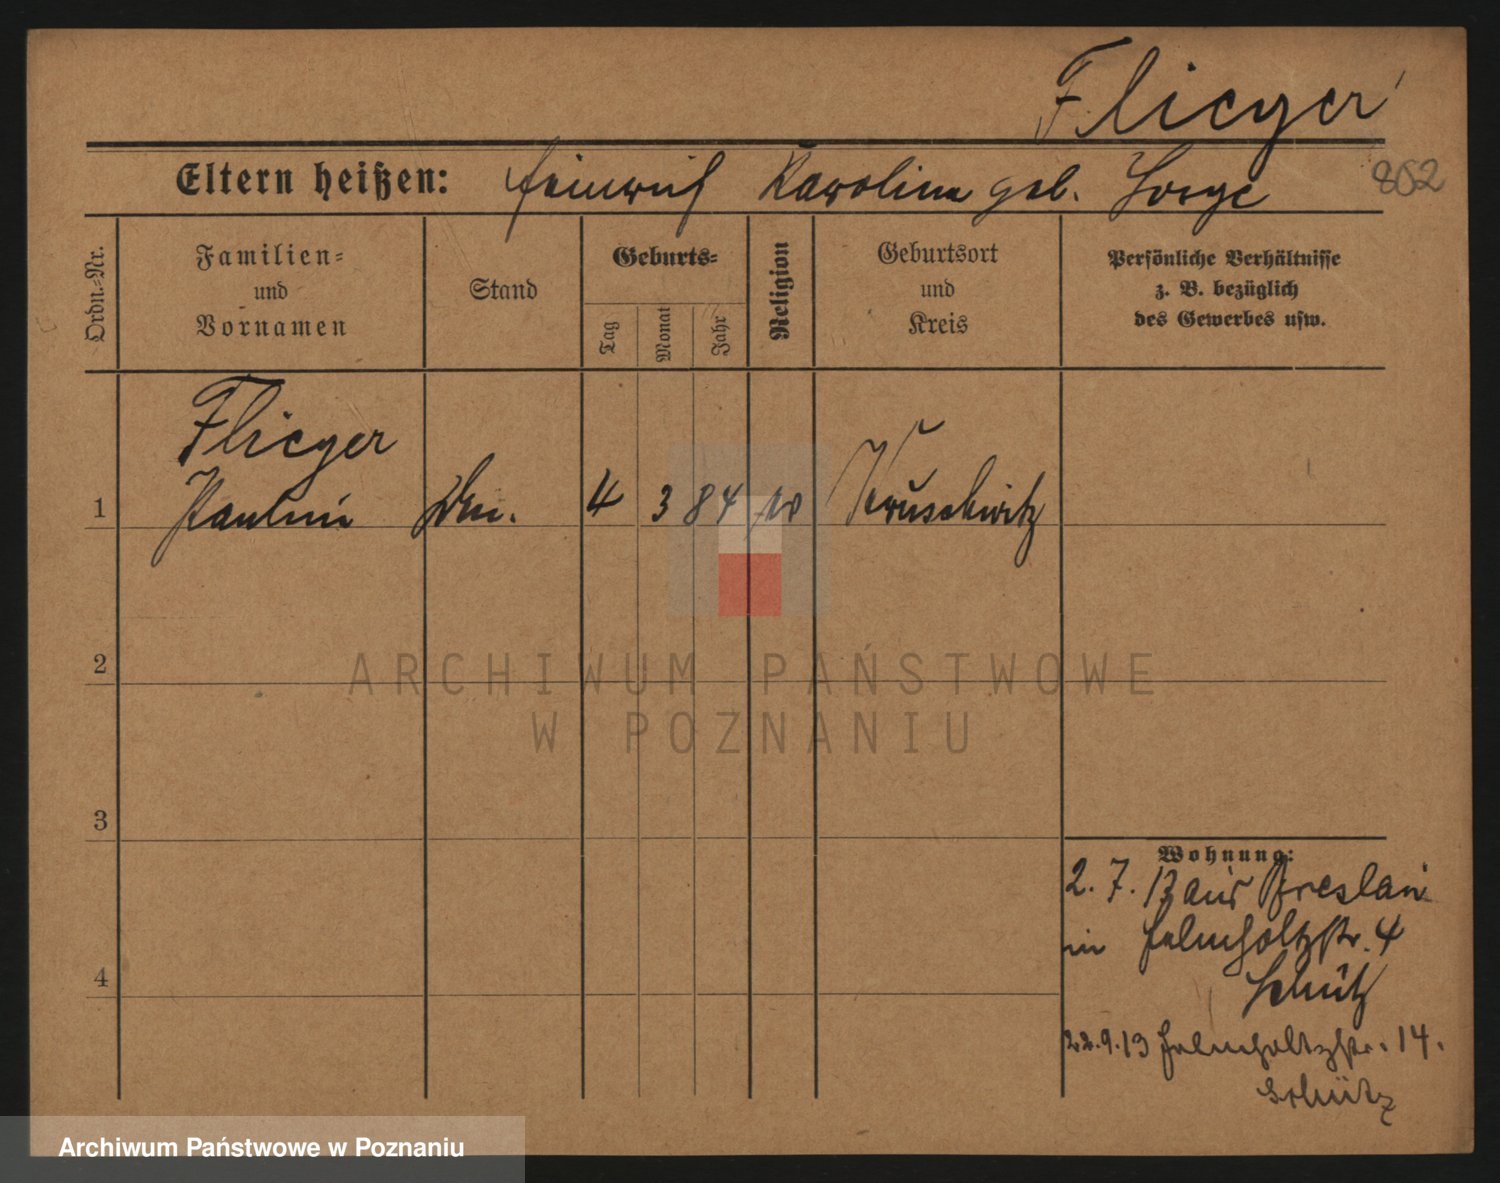 Flieger
Eltern heißen: Heinrich Karoline geb. Sorge
802
Ordn.-Nr.
Familien-
und
Vornamen
Stand
Geburts-
Tag
Monat
Jahr
Religion
Geburtsort
und
Kreis
Persönliche Verhältnisse
z. B. bezüglich
des Gewerbes usw.
Flieger
1 Pauline 4 3 84 Kruschwitz
ARCHIWUM PAŃSTWOWE
W POZNANIU
2
3
4
Wohnung:
2. 7. 13 aus Breslau
in Helmholtzstr. 4
Schütz
22.9.13 Helmholtzstr. 14.
Schütz
Archiwum Państwowe w Poznaniu